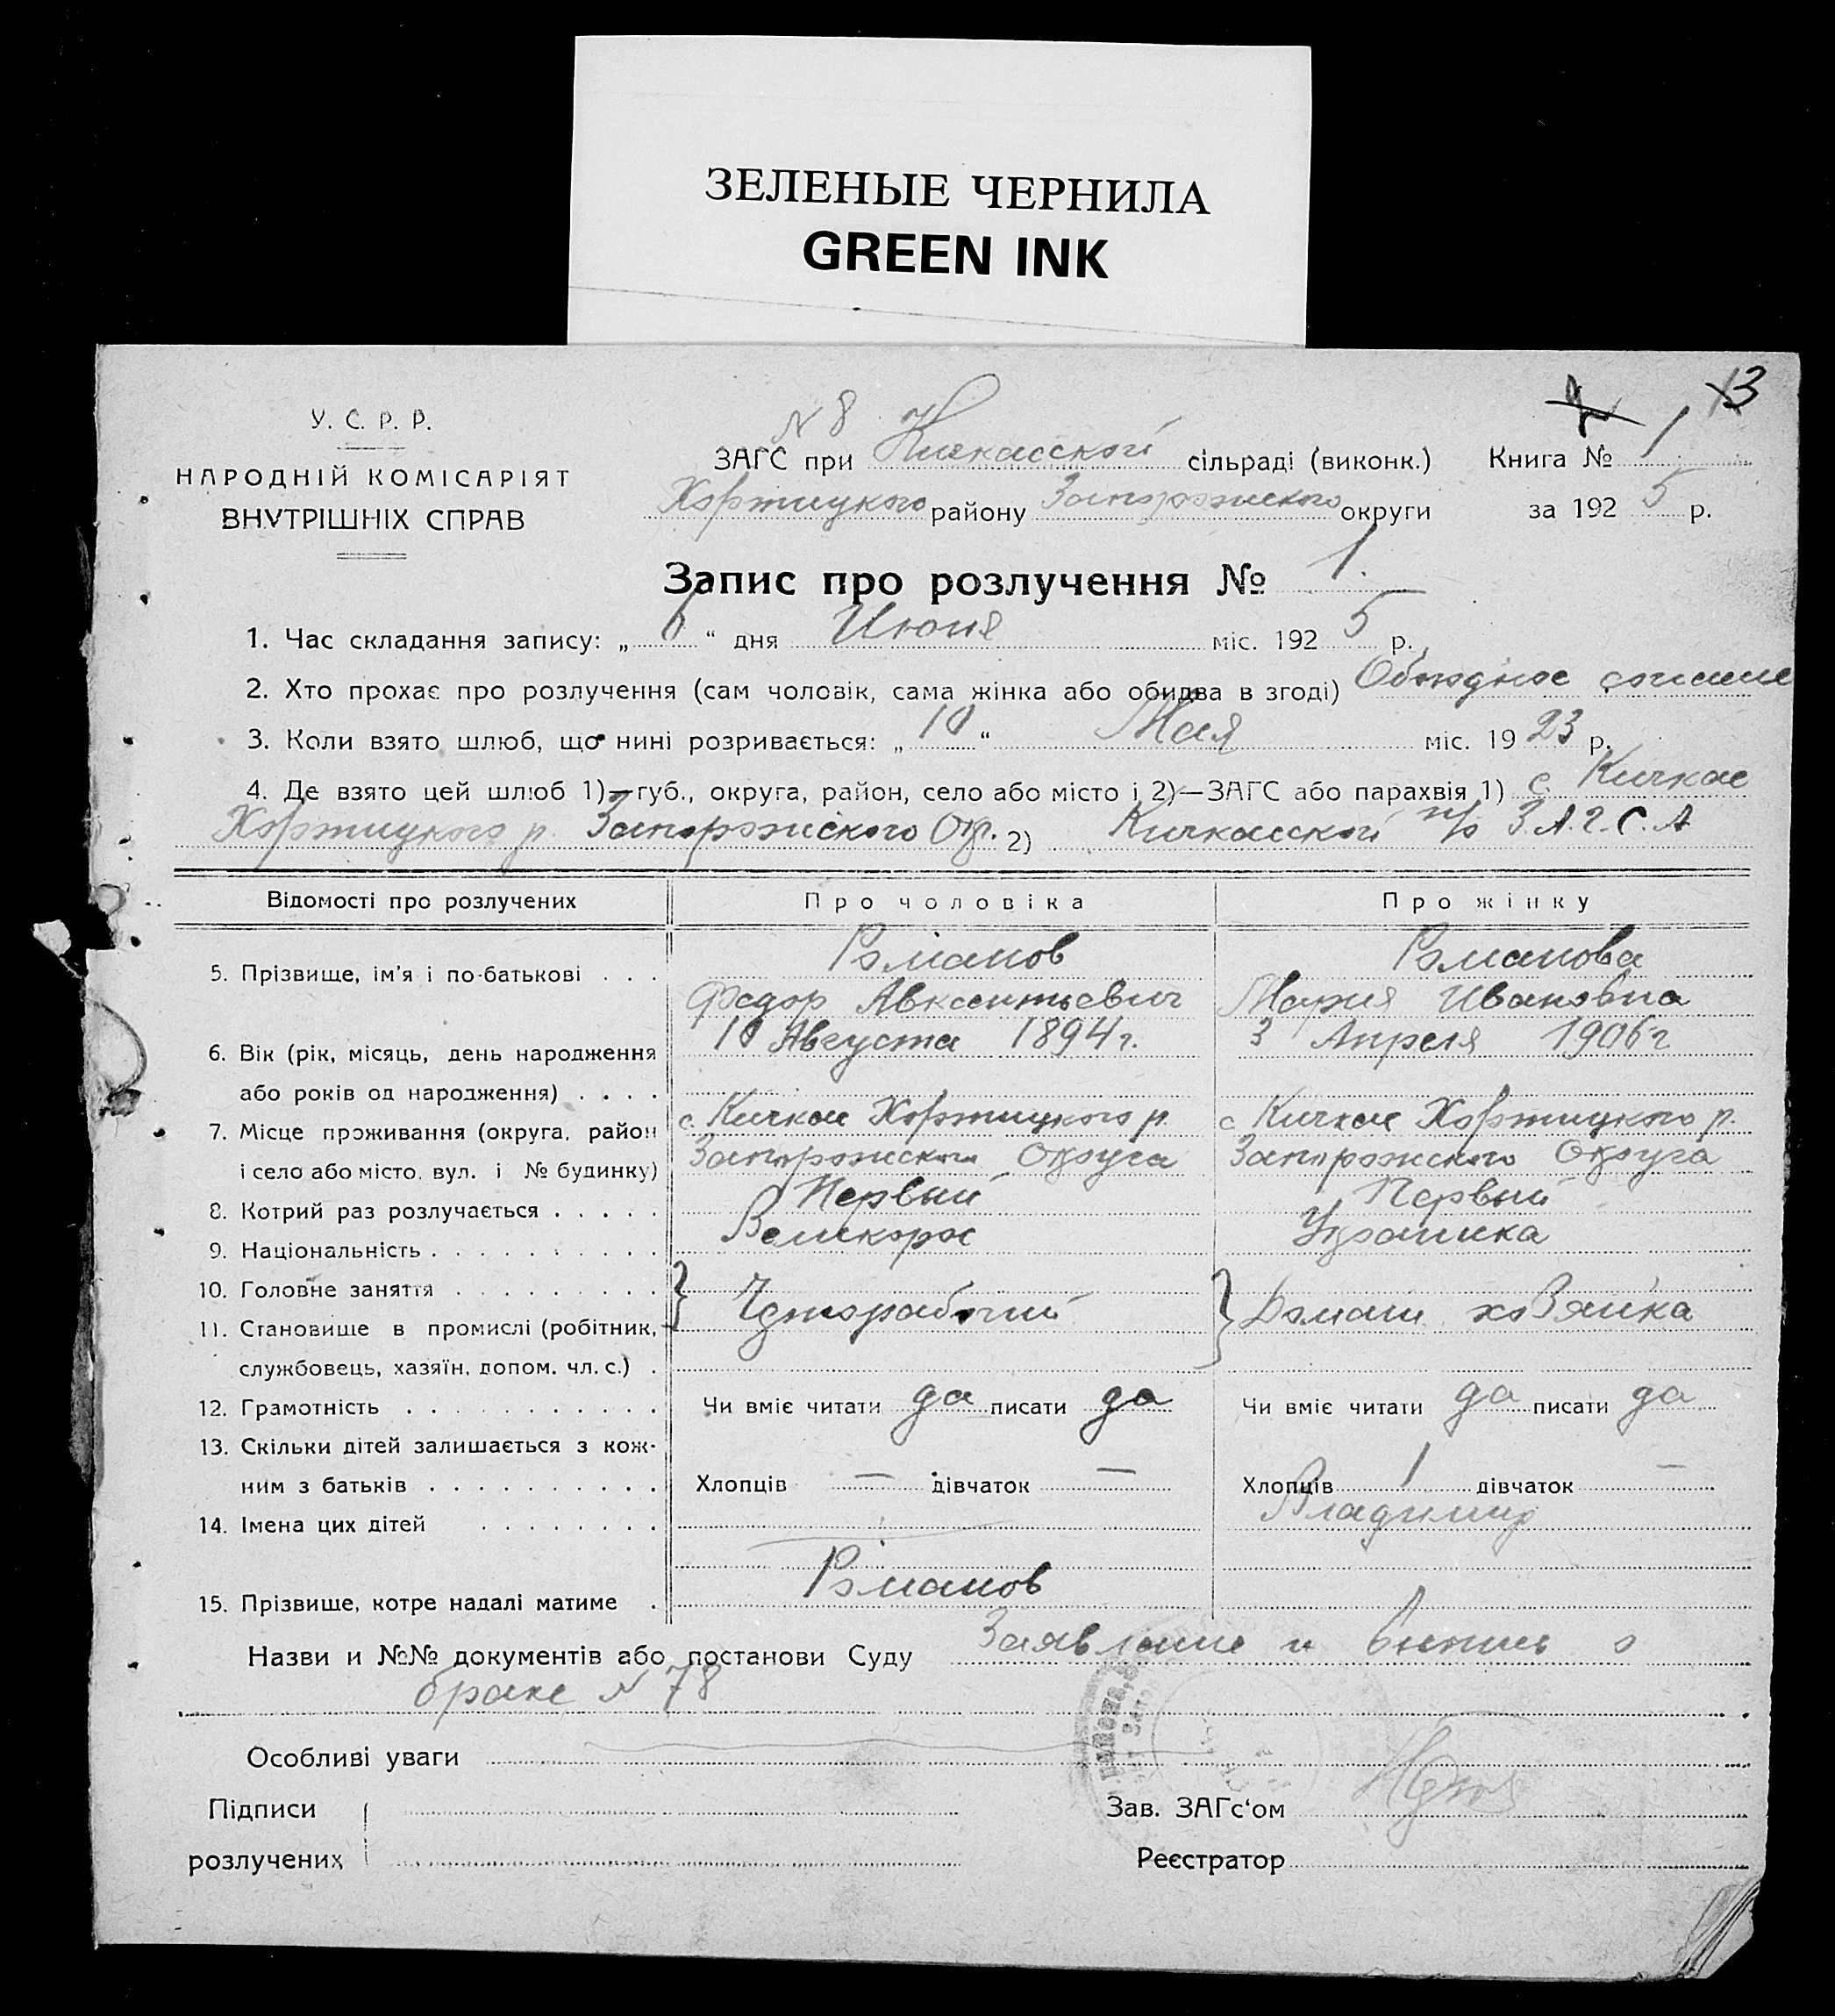 ЗЕЛЕНЫЕ ЧЕРНИЛА
GREEN INK
13
У. С. Р. Р.
НАРОДНІЙ КОМІСАРІЯТ
ВНУТРІШНІХ СПРАВ
N 8
ЗАГС при Кичкасской сільраді (виконк.) Книга № 1
Хортицкого району Запорожского округи за 1925 р.
Запис про розлучення № 1.
1. Час складання запису: „6“ дня Июня міс. 1925 р.
2. Хто прохає про розлучення (сам чоловік, сама жінка або обидва в згоді) Обоюдное
3. Коли взято шлюб, що нині розривається: „10“ Мая міс. 1923 р.
4. Де взято цей шлюб 1)—губ., округа, район, село або місто і 2)—ЗАГС або парахвія 1) с Кичкас
Хортицкого р. Запорожского Окр. 2) Кичкасской п/о З.А.Г.С.А
Відомості про розлучених Про чоловіка Про жінку
5. Прізвище, ім'я і по-батькові . . . Романов Романова
Федор Авксентьевич Мария Ивановна
6. Вік (рік, місяць, день народження 10 Августа 1894 г. 3 Апреля 1906 г
або років од народження) . . . .
7. Місце проживання (округа, район с. Кичкас Хортицкого р. с Кичкас Хортицкого р.
і село або місто, вул. і № будинку) Запорожского Округа Запорожского Округа
8. Котрий раз розлучається . . . . . Первый Первый
9. Національність . . . . . . . . . . Великорос Украинка
10. Головне заняття . . . . . . . . . Чернорабочий Домаш хозяйка
11. Становище в промислі (робітник,
службовець, хазяїн, допом. чл. с.) .
12. Грамотність . . . . . . . . . . . Чи вміє читати да писати да Чи вміє читати да писати да
13. Скільки дітей залишається з кож-
ним з батьків . . . . . . . . . . Хлопців — дівчаток — Хлопців 1 дівчаток —
14. Імена цих дітей . . . . . . . . Владимир
15. Прізвище, котре надалі матиме . Романов
Назви и №№ документів або постанови Суду Заявление и выпись о
браке N 78
Особливі уваги
Підписи Зав. ЗАГс'ом
розлучених Реєстратор